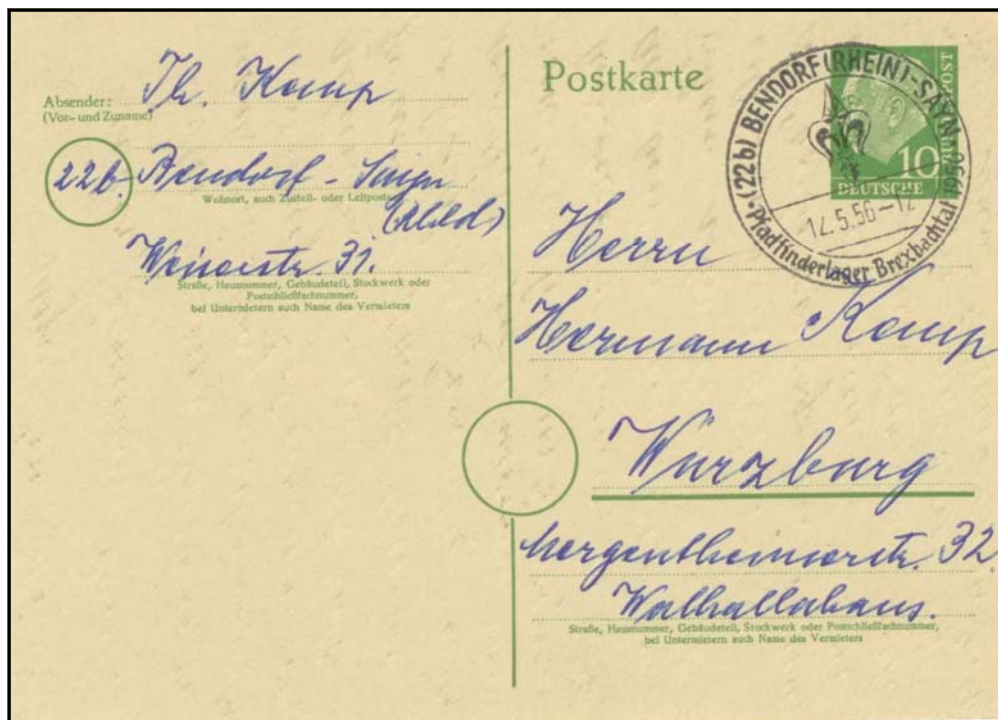 Absender: Th. Kamp
(Vor- und Zuname)
22b. Bendorf - Sayn
Wohnort, auch Zustell- oder Leitpostamt
(Rhld)
31.
Straße, Hausnummer, Gebäudeteil, Stockwerk oder
Postschließfachnummer,
bei Untermietern auch Name des Vermieters
Postkarte
10
DEUTSCHE BUNDESPOST
(22b) BENDORF (RHEIN)-SAYN
5.56-12
Pfadfinderlager Brexbachtal 1956
Herrn
Hermann Kamp
Würzburg
Mergentheimerstr. 32.
Walhallahaus.
Straße, Hausnummer, Gebäudeteil, Stockwerk oder Postschließfachnummer,
bei Untermietern auch Name des Vermieters